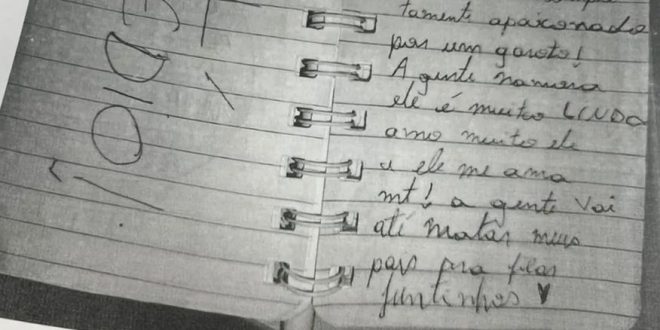 ÓDIO
tamente apaixonado
por um garoto!
A gente namora
ele é muito LINDO
amo muito ele
e ele me ama
mt! a gente vai
até matar meus
pais pra ficar
juntinhos ♥